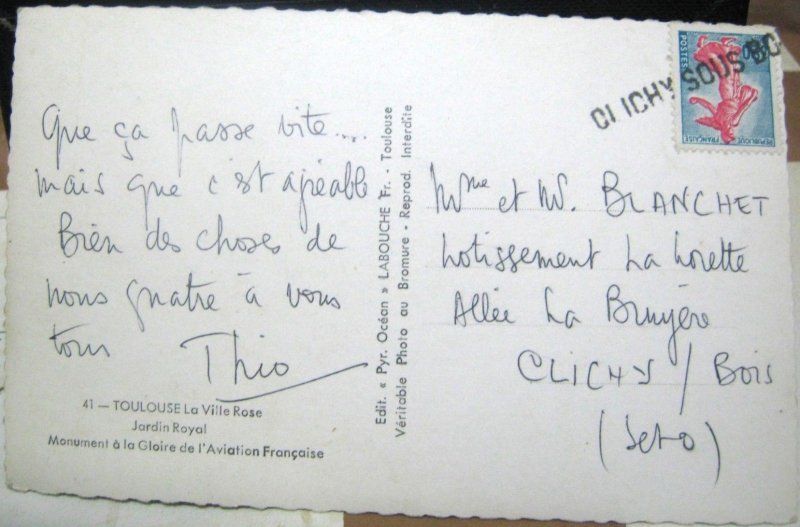 Que ça passe vite....
mais que c'est agréable
Bien des choses de
nous quatre à vous
tous
Thio
41 — TOULOUSE La Ville Rose
Jardin Royal
Monument à la Gloire de l'Aviation Française
Edit. « Pyr. Océan » LABOUCHE Fr. - Toulouse
Véritable Photo au Bromure - Reprod. Interdite
CLICHY SOUS BO
POSTES
REPUBLIQUE FRANÇAISE
Mme et M. BLANCHET
Lotissement La Lorette
Allée La Bruyère
CLICHY / BOIS
(Set-O)